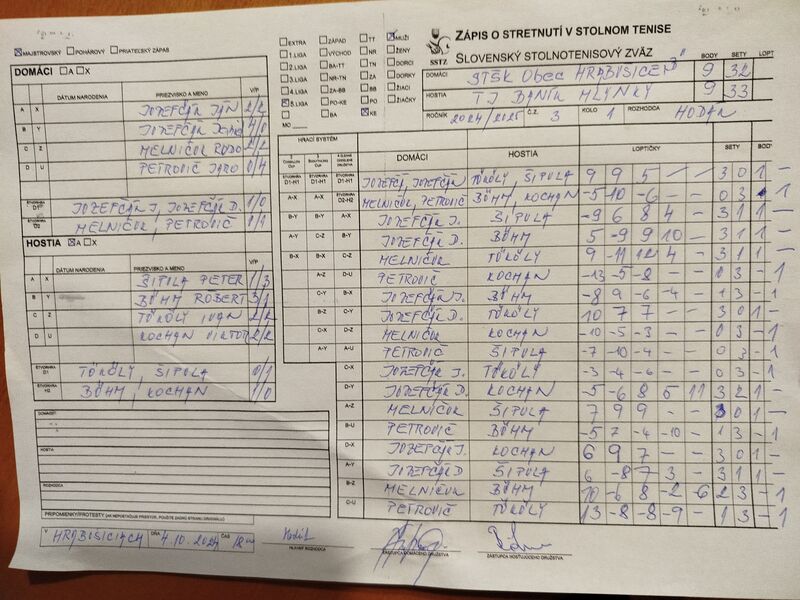 ZÁPIS O STRETNUTÍ V STOLNOM TENISE
SLOVENSKÝ STOLNOTENISOVÝ ZVÄZ
SSTZ
MAJSTROVSKÝ POHÁROVÝ PRIATEĽSKÝ ZÁPAS
EXTRA ZÁPAD TT MUŽI
1.LIGA VÝCHOD NR ŽENY
2.LIGA BA-TT TN DORCI
3.LIGA NR-TN ZA DORKY
4.LIGA ZA-BB BB ŽIACI
5.LIGA PO-KE PO ŽIAČKY
BA KE
MO
BODY SETY LOPT
DOMÁCI STŠK OBEC HRABUŠICE "B" 9 32
HOSTIA TJ BANÍK MLYNKY 9 33
ROČNÍK 2024/2025 Č.Z. 3 KOLO 1 ROZHODCA HODÁK
DOMÁCI A X
DÁTUM NARODENIA PRIEZVISKO A MENO V/P
A X JOZEFČÁK JÁN 2/2
B Y JOZEFČÁK 4/0
C Z MELNIČUK 2/2
D U PETROVIČ JARO 0/4
ŠTVORHRA D1 JOZEFČÁK J, JOZEFČÁK D. 1/0
ŠTVORHRA D2 MELNIČUK, PETROVIČ 0/1
HOSTIA A X
DÁTUM NARODENIA PRIEZVISKO A MENO V/P
A X ŠIPULA PETER 1/3
B Y BÖHM RÓBERT 3/1
C Z TÖKÖLY IVAN 2/2
D U KOCHAN VIKTOR 2/2
ŠTVORHRA D1 TÖKÖLY, ŠIPULA 0/1
ŠTVORHRA H2 BÖHM, KOCHAN 1/0
HRACÍ SYSTÉM DOMÁCI HOSTIA LOPTIČKY SETY BODY
JOZEFČÁK, JOZEFČÁK TÖKÖLY, ŠIPULA 9 9 5 - - 3 0 1 -
MELNIČUK, PETROVIČ BÖHM, KOCHAN -5 -10 -6 - - 0 3 - 1
B-Y A-X B-Y JOZEFČÁK J. ŠIPULA -9 6 8 4 - 3 1 1 -
A-Y C-Z B-Y JOZEFČÁK D. BÖHM 5 -9 9 10 - 3 1 1 -
B-X B-X C-Z MELNIČUK TÖKÖLY 9 -11 12 4 - 3 1 1 -
A-Z D-U PETROVIČ KOCHAN -13 -5 -8 - - 0 3 - 1
C-Y B-X JOZEFČÁK J. BÖHM -8 9 -6 -4 - 1 3 - 1
B-Z C-Y JOZEFČÁK D. TÖKÖLY 10 7 7 - - 3 0 1 -
C-X D-Z MELNIČUK KOCHAN -10 -5 -3 - - 0 3 - 1
A-Y A-U PETROVIČ ŠIPULA -7 -10 -4 - - 0 3 - 1
C-X JOZEFČÁK J. TÖKÖLY -3 -4 -6 - - 0 3 - 1
D-Y JOZEFČÁK D. KOCHAN -5 -6 8 5 11 3 2 1 -
A-Z MELNIČUK ŠIPULA 7 9 9 - - 3 0 1 -
B-U PETROVIČ BÖHM -5 7 -4 -10 - 1 3 - 1
D-X JOZEFČÁK J. KOCHAN 6 9 7 - - 3 0 1 -
A-Y JOZEFČÁK D ŠIPULA 6 -8 7 3 - 3 1 1 -
B-Z MELNIČUK BÖHM 10 -6 8 -2 -6 2 3 - 1
C-U PETROVIČ TÖKÖLY 13 -8 -8 -9 - 1 3 - 1
DOMÁCI
HOSTIA
ROZHODCA
PRIPOMIENKY/PROTESTY
V HRABUŠICIACH DŇA 4.10.2024 ČAS 18
HLAVNÝ ROZHODCA
ZÁSTUPCA DOMÁCEHO DRUŽSTVA
ZÁSTUPCA HOSŤUJÚCEHO DRUŽSTVA